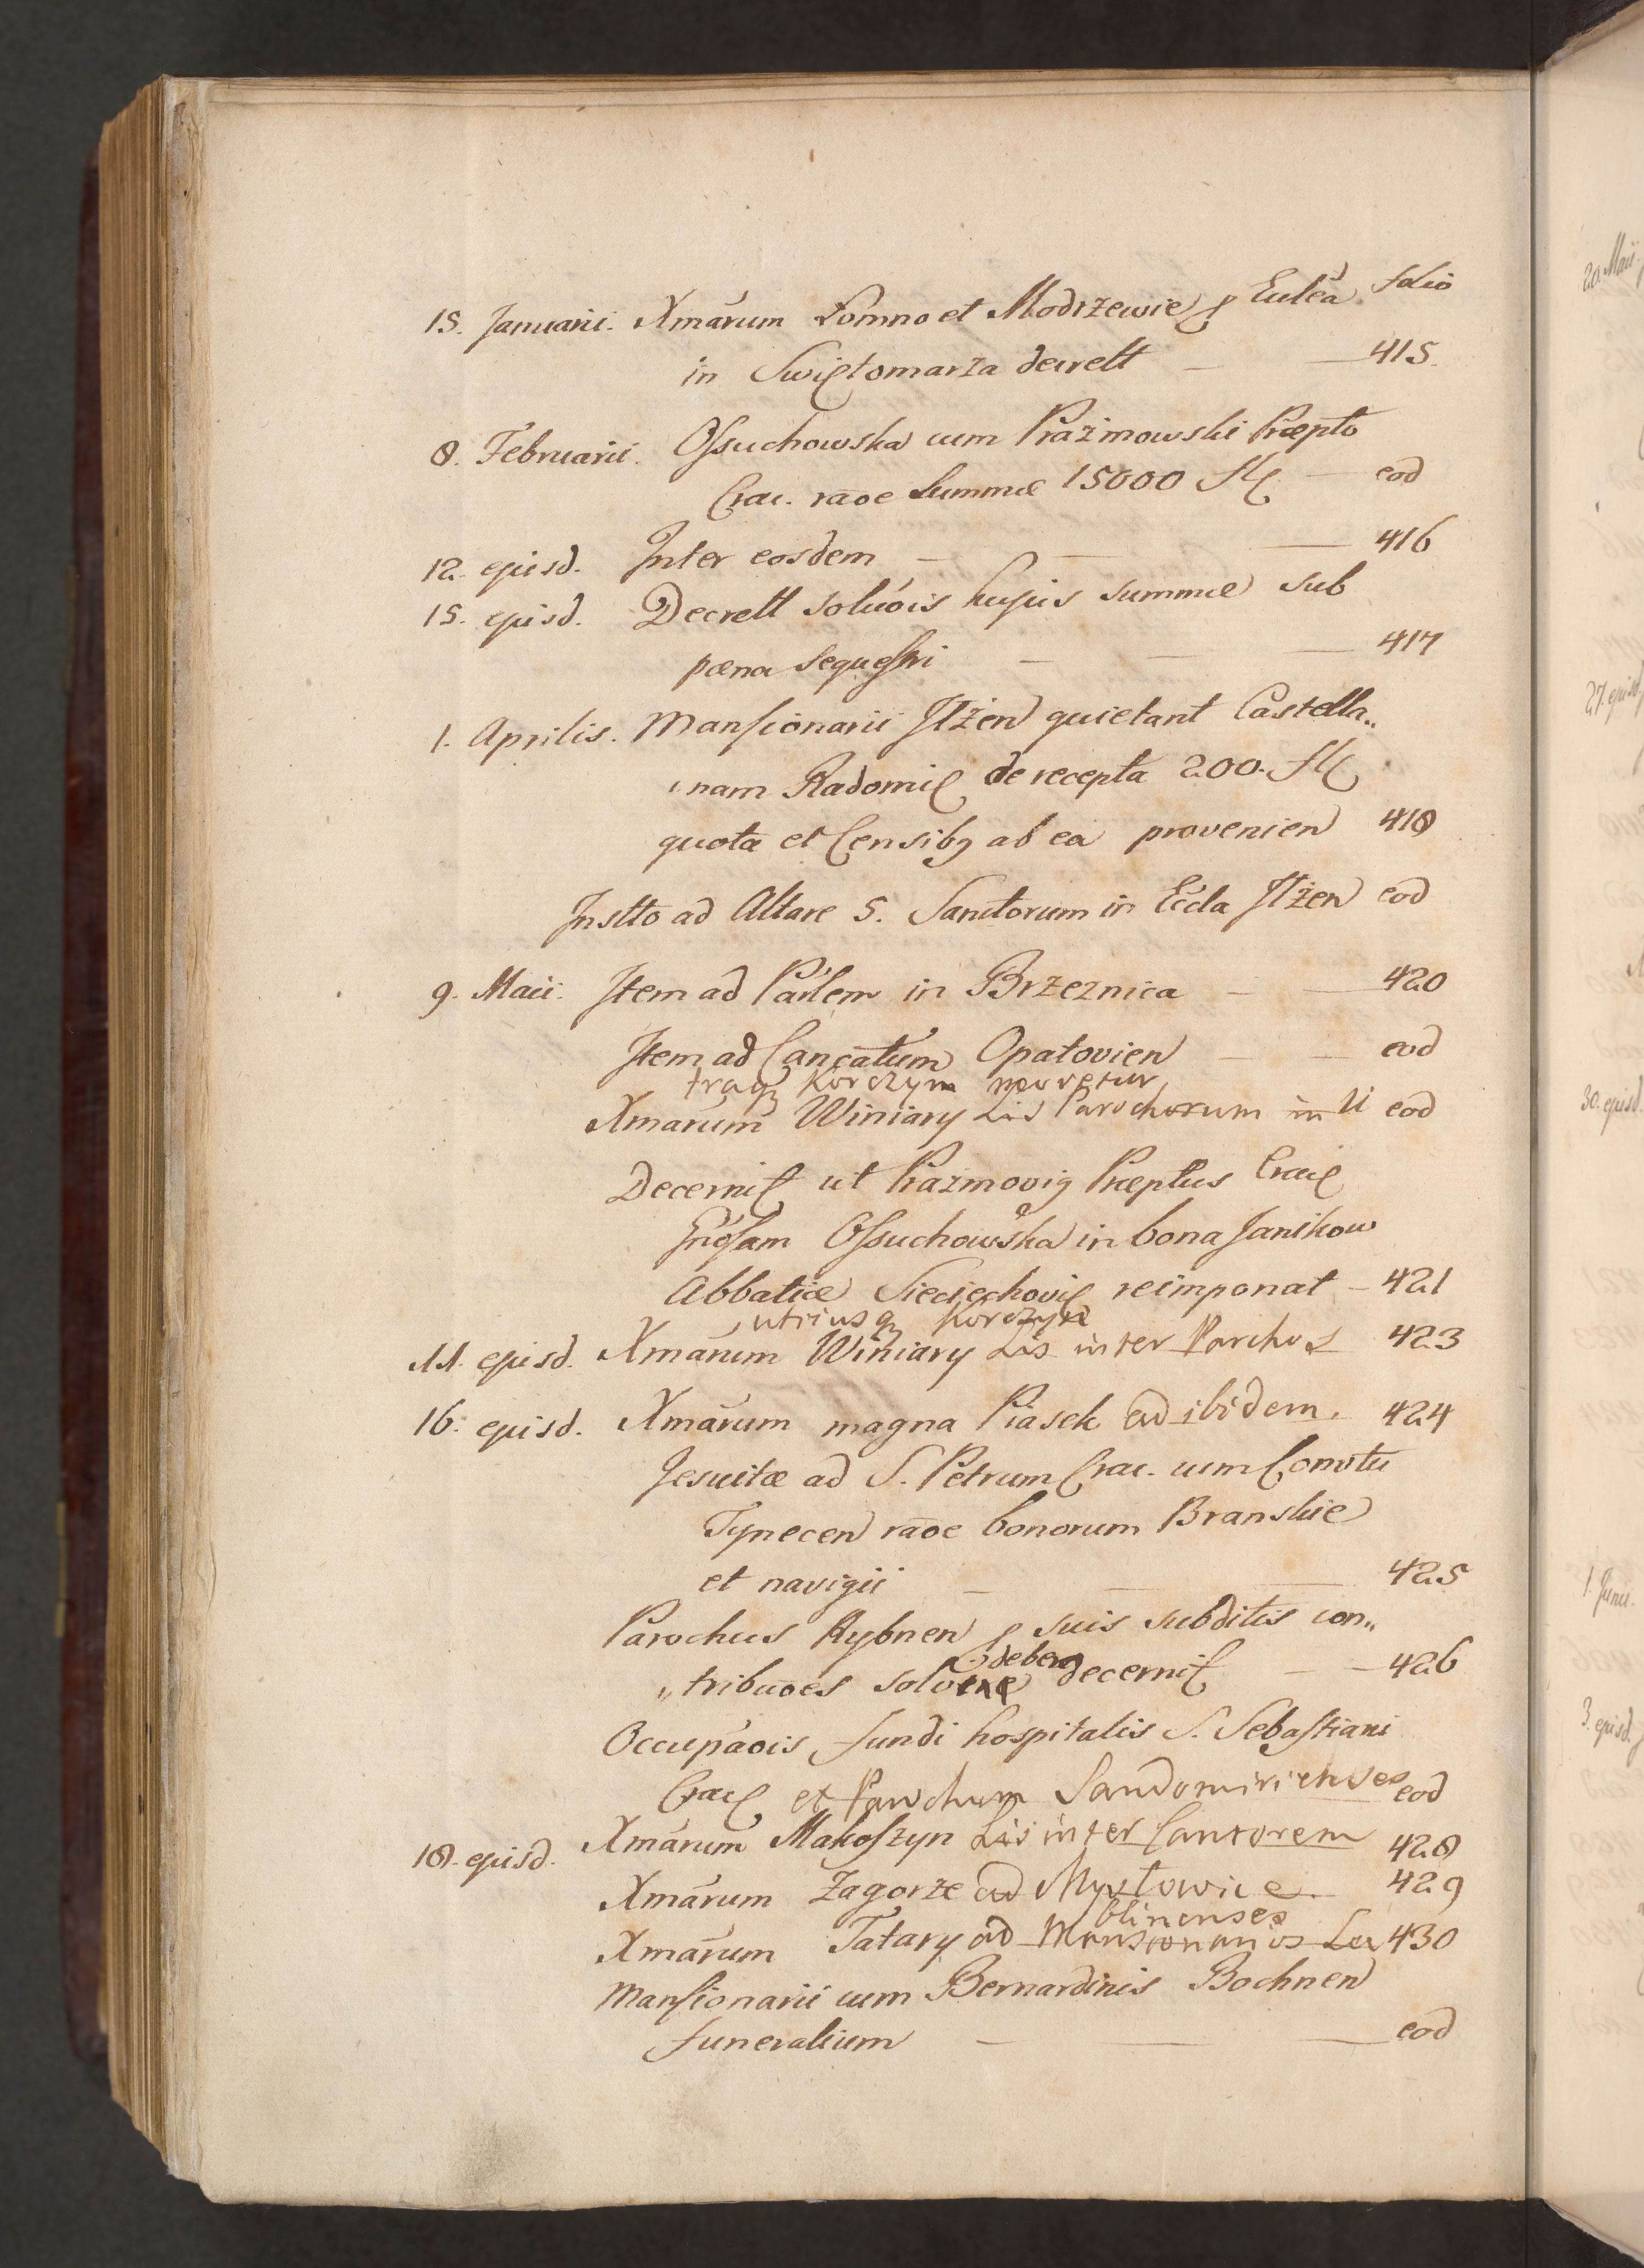 folio
15. Januarii. Xmarum Łomno et Modrzewie p Eulea
in Swiętomarza decrett — 415.
8. Februarii. Ossuchowska cum Prażmowski Præpto
Crac. raoe summæ 15000 fl — eod
12. ejusd. Inter eosdem — — — 416
15. ejusd. Decrett soluois hujus summæ sub
pæna sequestri — — — 417
1. Aprilis. Mansionarii Iłżen quietant Castella„
„nam Radomi de recepta 200. fl
quota et Censibq ab ea provenien 418
Instto ad Altare 5. Sanctorum in Eccla Iłżen eod
9. Maii. Item ad Parlem in Brzeznica — — 420
Item ad Cancatum Opatovien — — eod
traqq Korczyn movetur
Xmarum Winiary Lis Parochorum in U eod
Decerni ut Prazmovig Præptus Crac
Gnosam Ossuchowska in bona Janikow
Abbatiæ Sieciechovi reimponat — 421
utriusqq Korczyn
11. ejusd. Xmarum Winiary Lis inter Parchos 423
16. ejusd. Xmarum magna Piasek ad ibidem. 424
Jesuitæ ad S. Petrum Crac. cum Convtu
Tynecen raoe bonorum Branskie
et navigii — — — 425
Parochus Rybnen p suis subditis con„
debere
„tribuoes solvere decerni — — 426
Occupaois fundi hospitalis S. Sebastiani
Crac et Parochum Sandomirienses eod
18. ejusd. Xmarum Makoszyn Lis inter Cantorem 428
Xmarum Zagorze ad Mysłowice. 429
blinenses
Xmarum Tatary ad Mansionarios Lu 430
Mansionarii cum Bernardinis Bochnen
funeralium — — eod
20. Maii.
27. ejusd
30. ejusd.
1. Junii.
3. ejusd